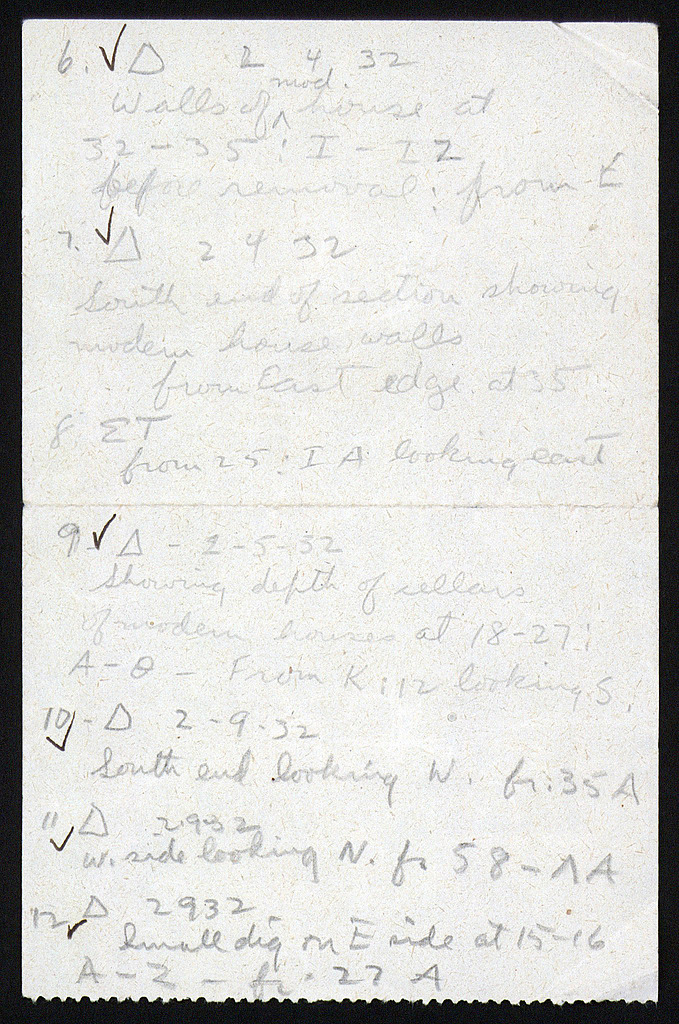 6. ✓ Δ 2 4 32
mod.
Walls of ^ house at
32 - 35 : I - IZ
before removal : from E
7. ✓ Δ 2 4 32
South end of section showing
modern house walls
from East edge at 35
8 ΣΤ
from 25 : I A looking east
9 ✓ Δ - 2-5-32
Showing depth of cellars
of modern houses at 18-27 :
A - Θ - From K : 12 looking S.
10 ✓ - Δ 2 - 9 - 32
South end looking W. fr. 35 A
11 ✓ Δ 2 9 32
W. side looking N. fr 58 - ΛA
12 ✓ Δ 2 9 32
Small dig on E side at 15-16
A - Z - fr. 27 A